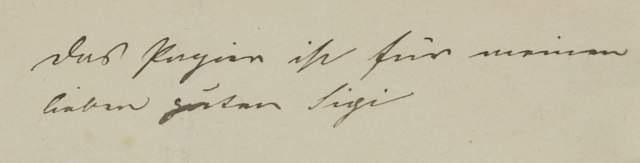 Das Papier ist für meinen
lieben guten Sigi